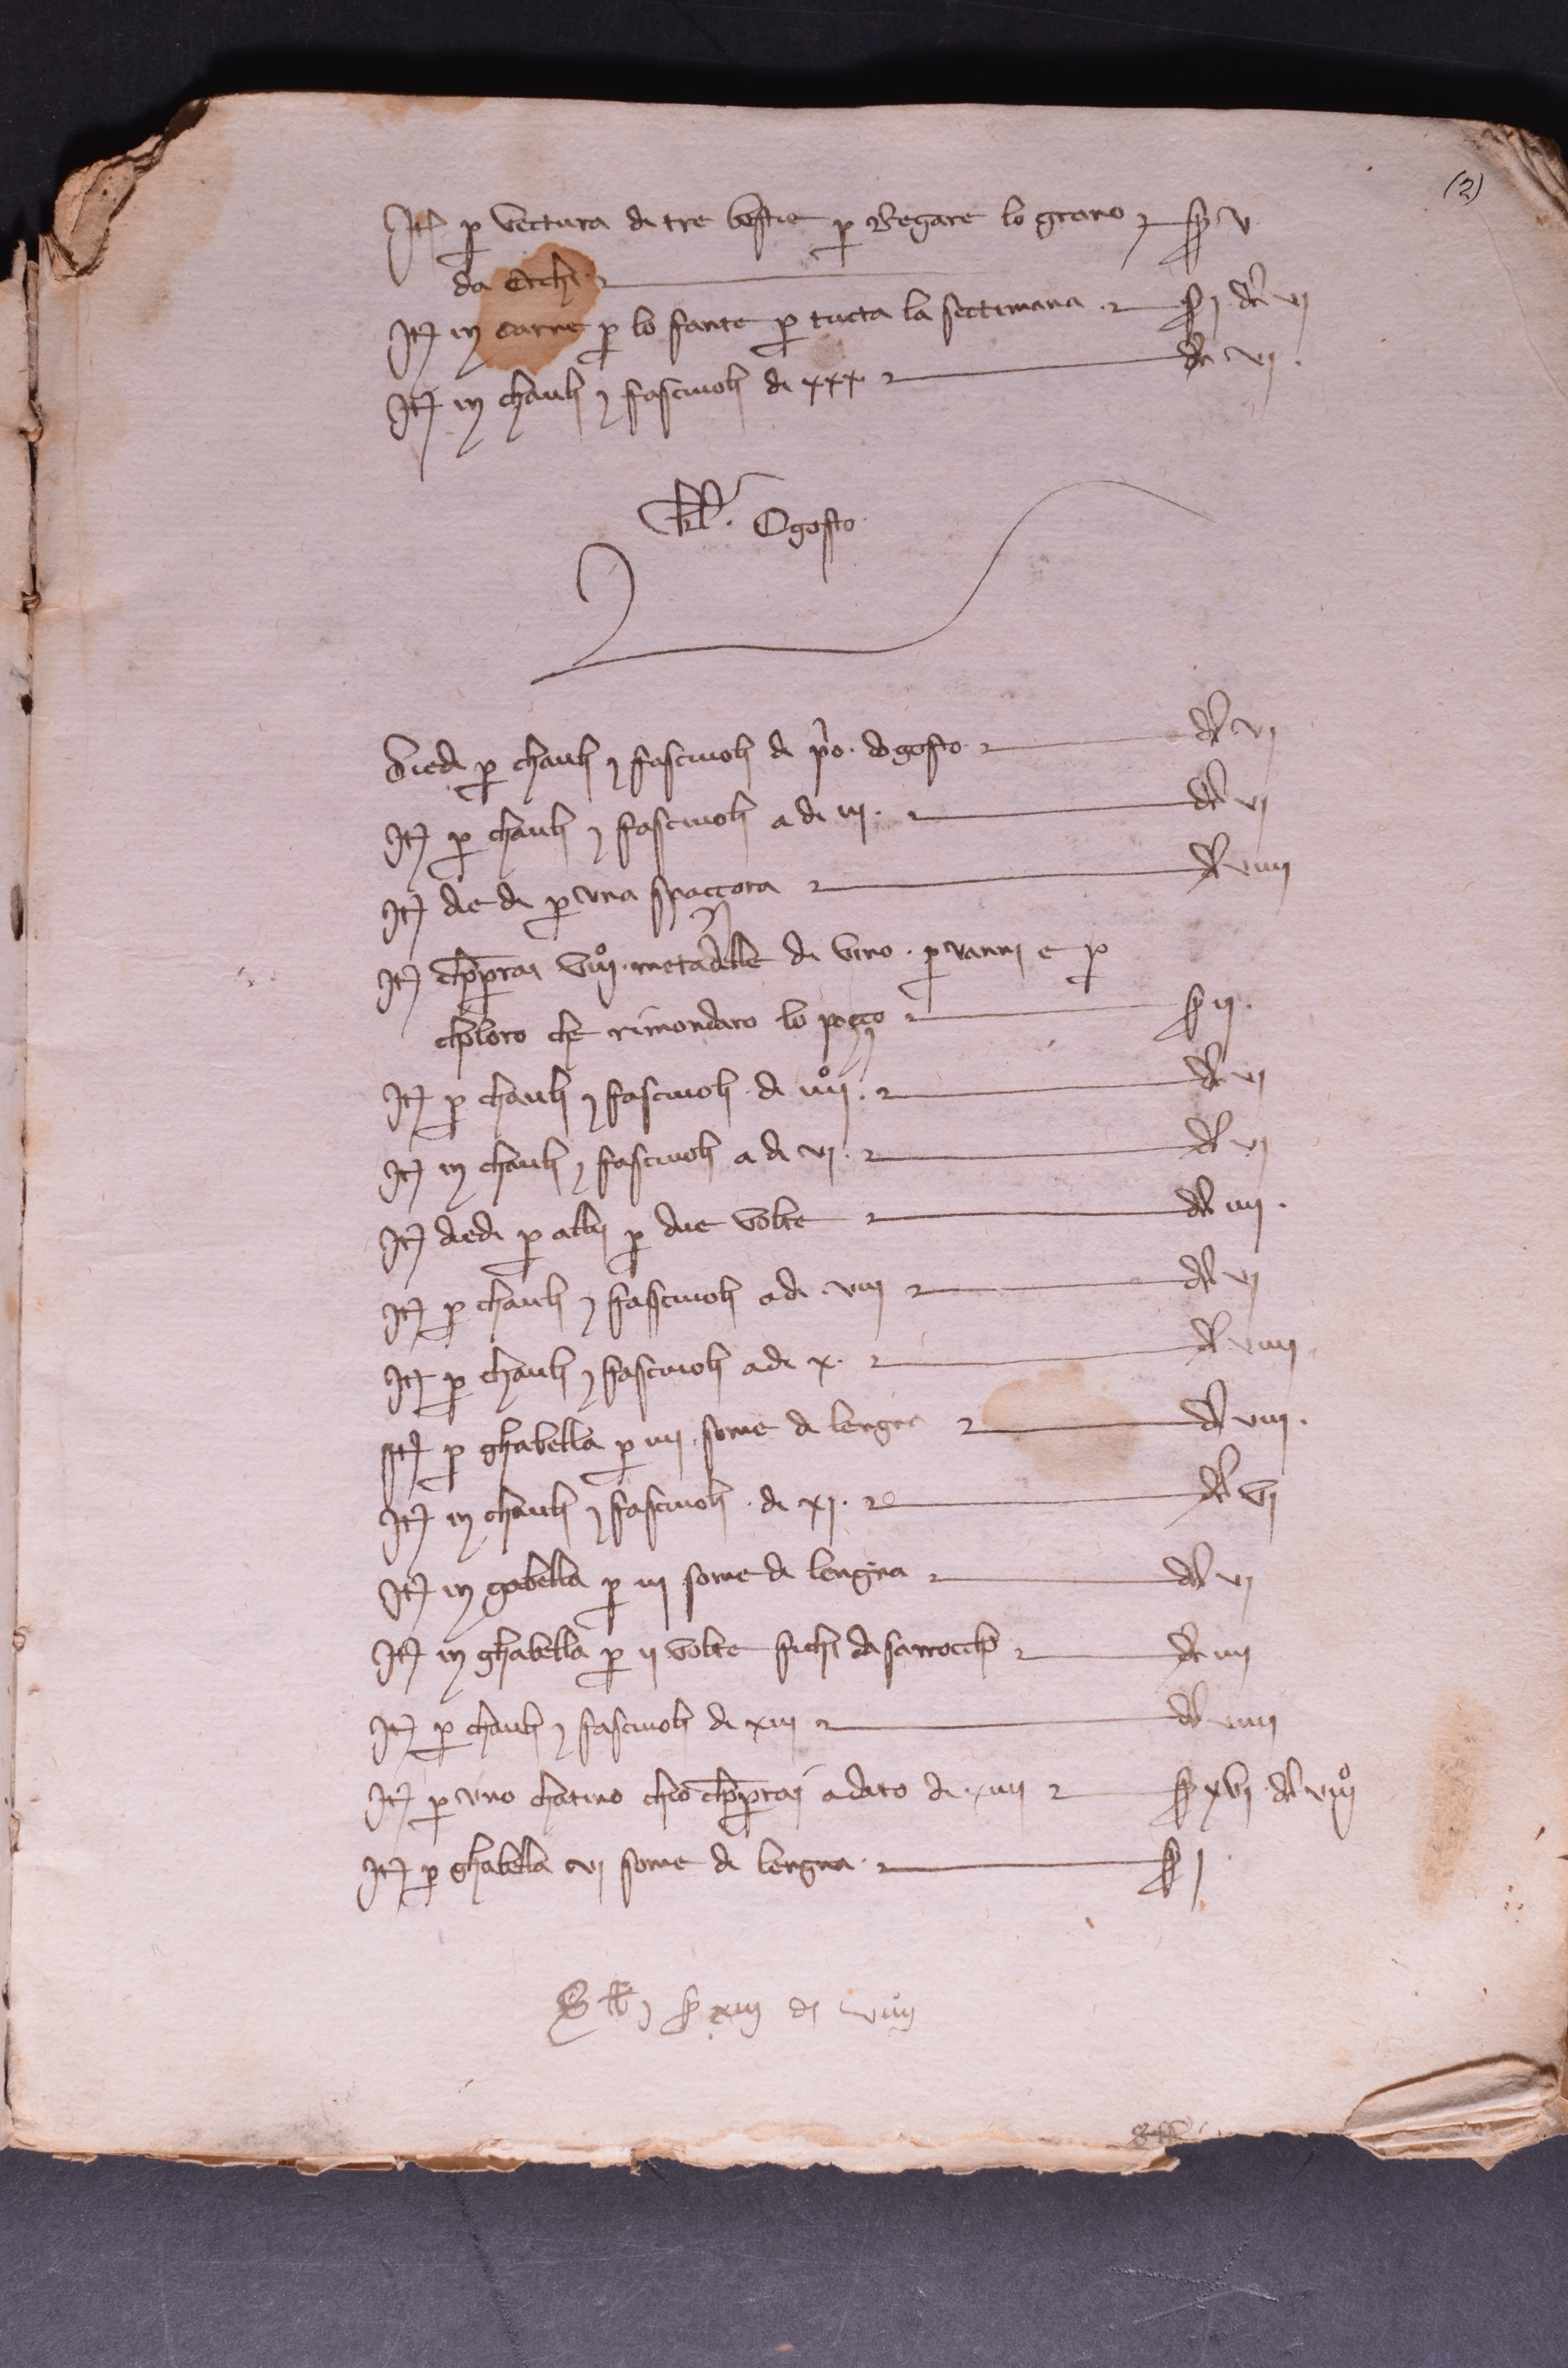 (2)
It p vectura di tre bestie p Regare lo grano s v
da
It in carne p lo fante p tucta la settimana s j dr vj
It in chauli & fascuioli di xxx dr vj
kl. Ogosto
Diedi p chauli & fascuioli di po dogosto dr vj
It p chauli & fascuioli a di iij dr vj
It diedi p una spaccora dr viiij
It chpprai viiijo metadelle di vino p vanni e p
choloro che rimondaro lo poçço s ij
It p chauli & fascuioli di iiijo dr vj
It in chauli & fascuioli a di vj dr vj
It diedi p allij p due volte dr iiij
It p chauli & fascuioli a di viij dr vj
It p chauli & fascuioli a di x dr viiij
It p ghabella p iiij some di lengna dr viij
It in chauli & fascuioli di xj dr vj
It in gabella p iij some di lengna dr vj
It in ghabella p ij volte fichi da sarrocch dr iiij
It p chauli & fascuioli di xiij dr viiij
It p uno chatino chio chpprai adato di xiiij s xvj dr viiijo
It p ghabella vj some di lengna s j
s xiij d viiijo